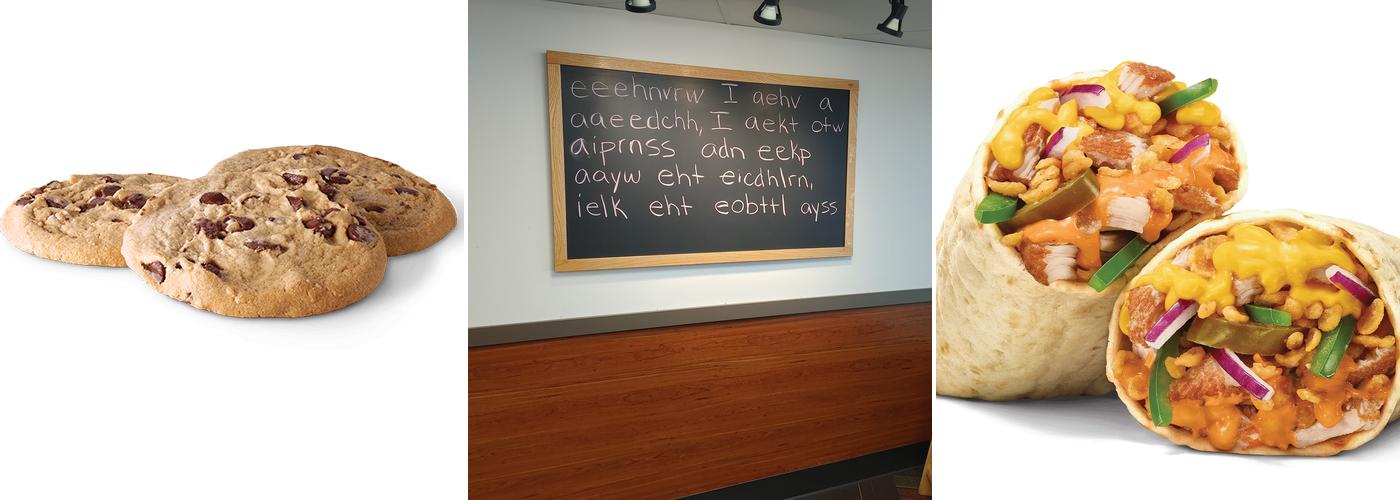 eeehnvrw I aehv a
aaeedchh, I aekt otw
aiprnss adn eekp
aayw eht eicdhlrn,
ielk eht eobttl ayss